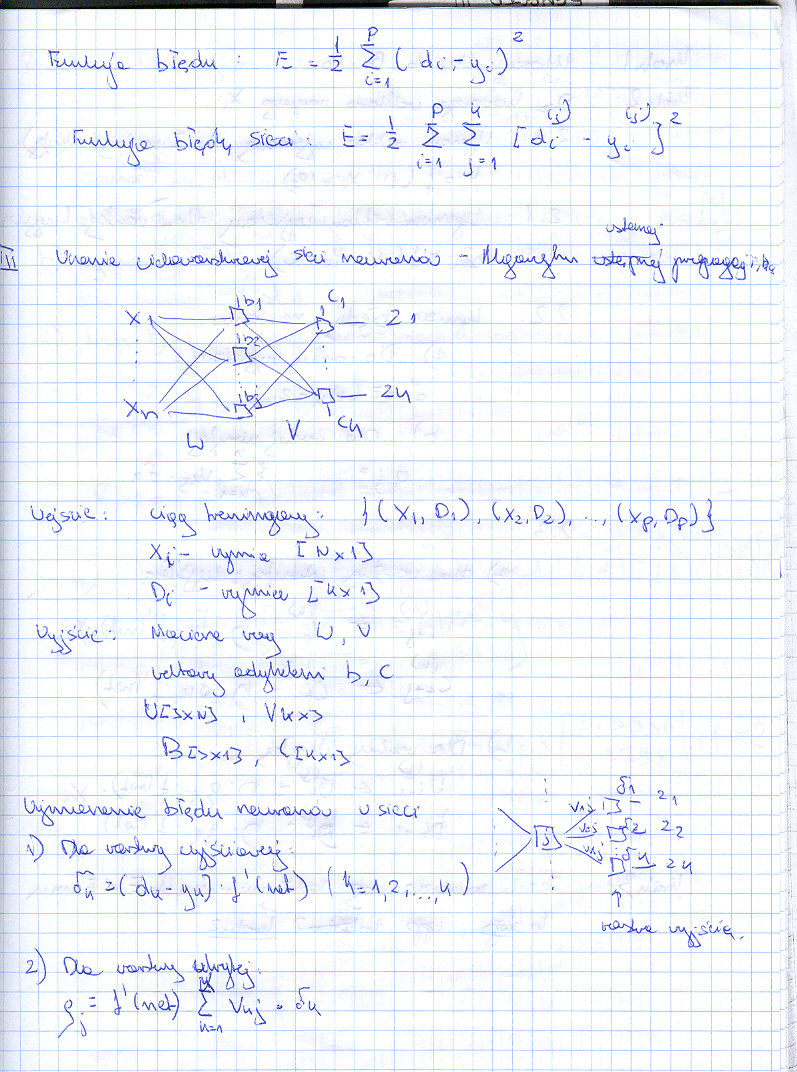 Funkcja błędu : E = 1/2 P∑i=1 ( di - yi )²
Funkcja błędu sieci : E = 1/2 P∑i=1 K∑j=1 [ di(j) - yi(j) ]²
III Uczenie sieci neuronów - Algorytm wstecznej propagacji
X1 b1 C1 Z1
b2
Xn bj Ck Zk
W V
Wejście : ciąg treningowy : { (X1, D1), (X2, D2), ..., (Xp, Dp) }
Xi - wymia [N x 1]
Di - wymiar [K x 1]
Wyjście : Macierze wag W, V
wektory odchyleń b, C
W[J x N] , V K x J
B[J x 1] , C[K x 1]
Wyznaczanie błędu neuronów w sieci
1) Dla warstwy wyjściowej:
δk = (dk - yk) · f'(net) ( k = 1, 2, ..., K )
δ1 Z1
V1j
J V2j δ2 Z2
δk Zk
warstwa wyjścia.
2) Dla warstwy ukrytej:
ρj = f'(net) K∑k=1 Vkj · δk